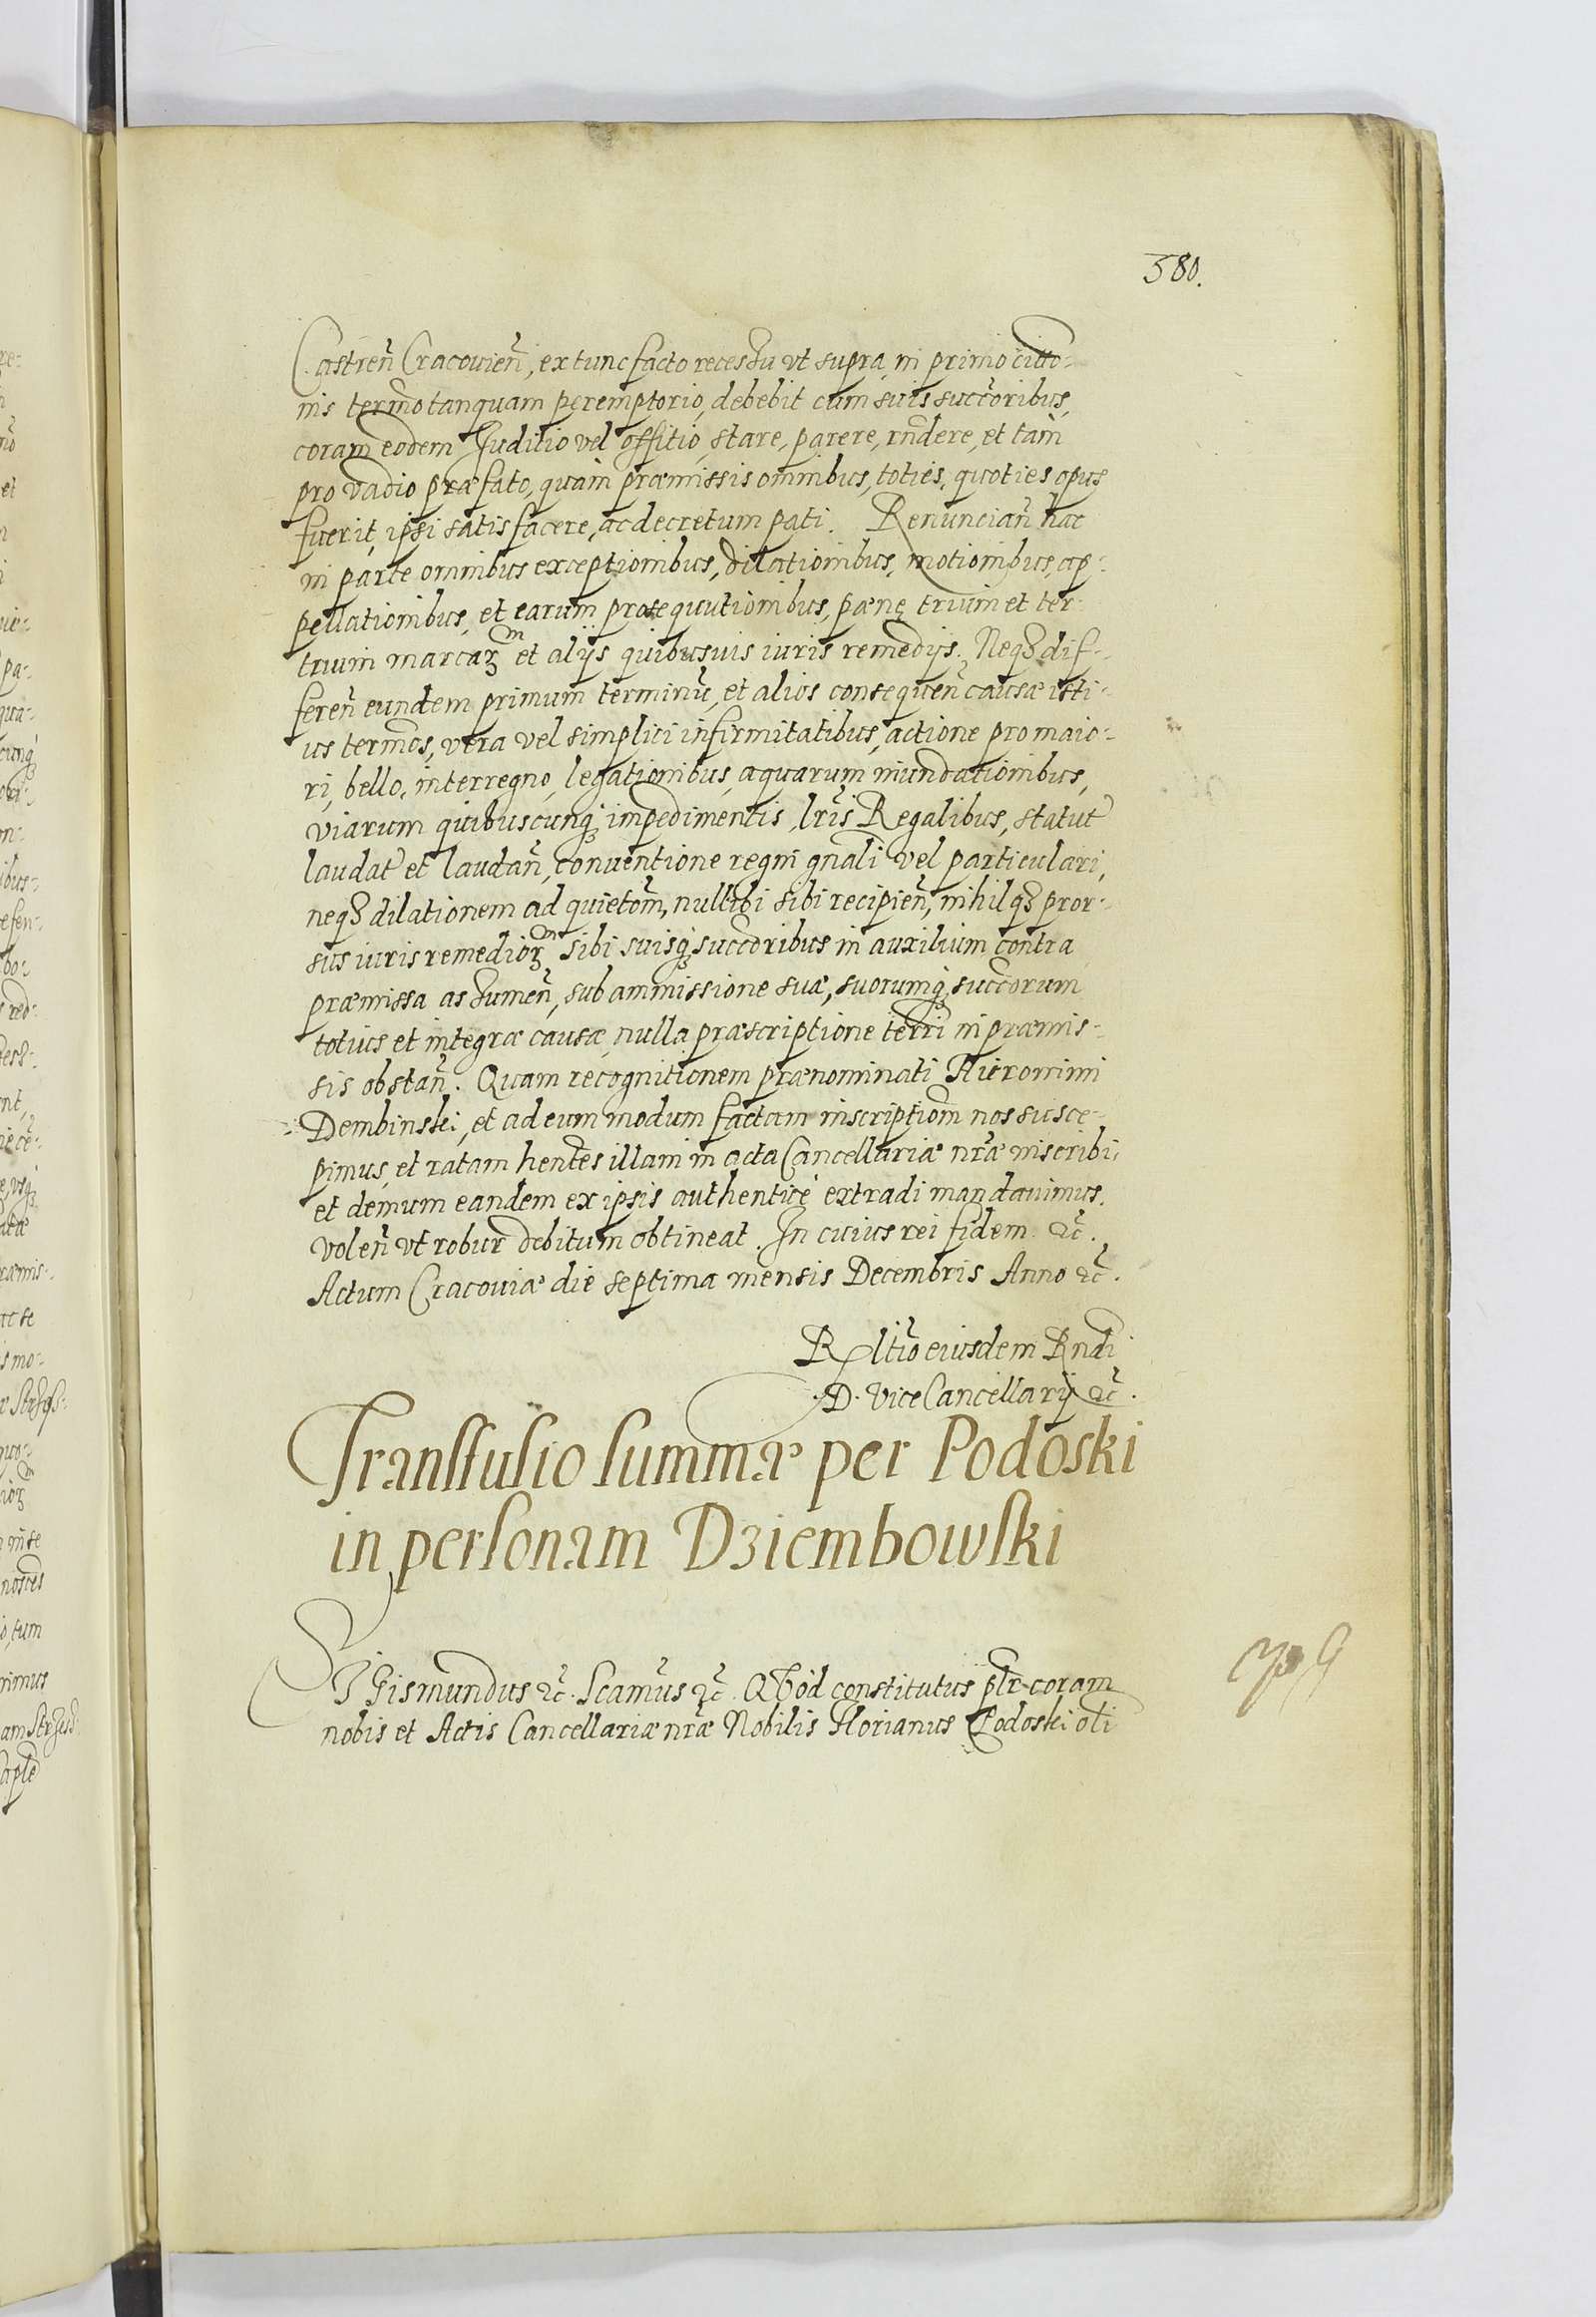 580.
Castreñ Cracovieñ, ex tunc facto recessu vt supra, in primo citto=
nis termo tanquam peremptorio, debebit cum suis succoribus,
coram eodem Juditio vel offitio, stare, parere, rndere, et tam
pro vadio præfato, quàm præmissis omnibus, toties, quoties opus
fuerit, ipsi satisfacere, ac decretum pati. Renunciañ hac
in parte omnibus exceptionibus, dilationibus, motionibus, ap=
pellationibus, et earum prosequutionibus, pœnę trium et ter=
trium marcaꝝ et alijs quibusuis iuris remedijs. Neqꝫ dif=
fereñ eundem primum terminũ, et alios consequeñ causæ isti=
us termos, vera vel simplici infirmitatibus, actione pro maio=
ri, bello, interregno, legationibus, aquarum inundationibus,
viarum quibuscunqꝫ impedimentis, lris Regalibus, statut
laudat et laudañ, conuentione regni gnali vel particulari,
neqꝫ dilationem ad quietom, nullibi sibi recipieñ, nihilqꝫ pror=
sus iuris remedioꝝ sibi suisqꝫ succoribus in auxilium contra
præmissa assumeñ, sub ammissione suæ, suorumqꝫ succorum
totius et integræ causæ, nulla præscriptione terri in præmis=
sis obstañ. Quam recognitionem prænominati Hieronimi
Dembinski, et ad eum modum factam inscriptiom nos susce=
pimus, et ratam hentes illam in acta Cancellariæ nræ inscribi,
et demum eandem ex ipsis authenticè extradi mandauimus.
Voleñ vt robur debitum obtineat. In cuius rei fidem &c.
Actum Cracouiæ die septima mensis Decembris Anno &c.
Rltio eiusdem Rndi
D. Vice Cancellarij &c.
Transfusio summæ per Podoski
in personam Dziembowski
Sigismundus &c. Scamus &c. Quod constitutus plr coram
nobis et Actis Cancellariæ nræ Nobilis Florianus Podoski oli